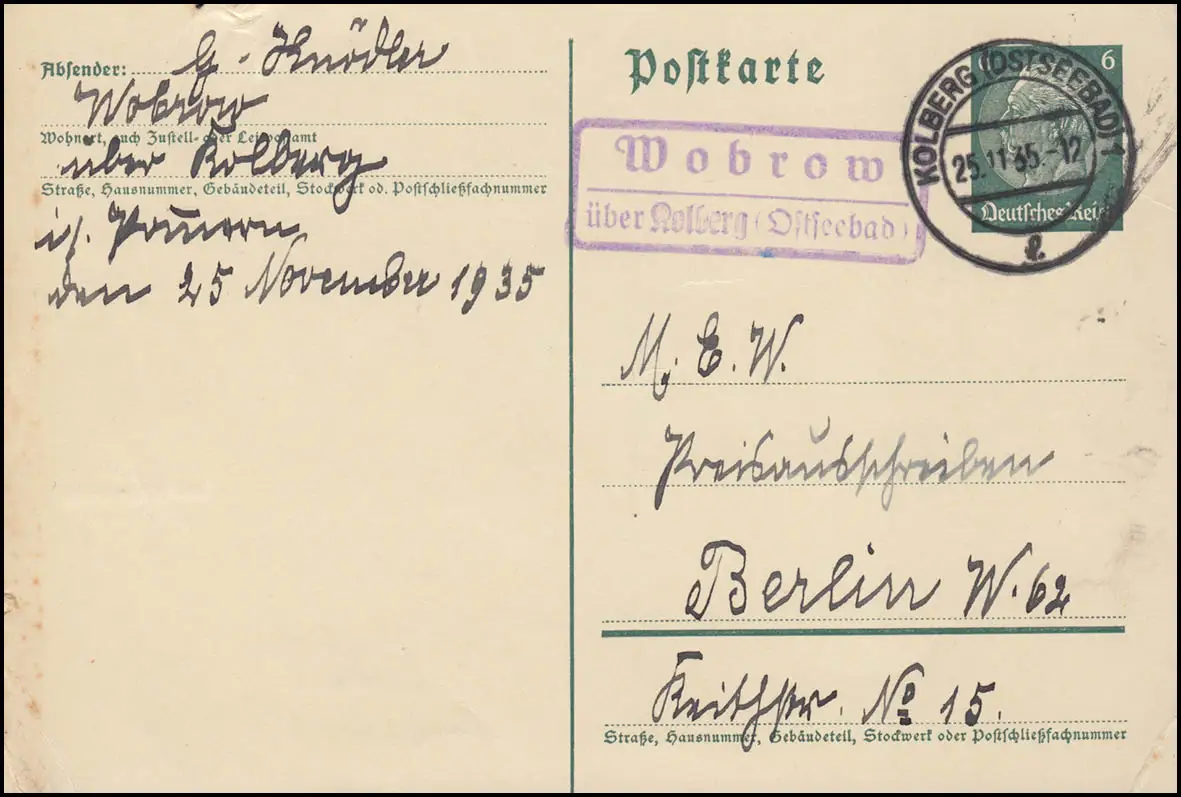 Absender: G. Knödler
Wobrow
Wohnort, auch Zustell- oder Leitpostamt
über Kolberg
Straße, Hausnummer, Gebäudeteil, Stockwerk od. Postschließfachnummer
i/. Pommern
den 25 November 1935
Postkarte
6
Deutsches Reich
KOLBERG (OSTSEEBAD) 1
25.11.35.-12
Wobrow
über Kolberg (Ostseebad)
M. E. W.
Preisausschreiben
Berlin W. 62
Keithstr. No 15.
Straße, Hausnummer, Gebäudeteil, Stockwerk oder Postschließfachnummer